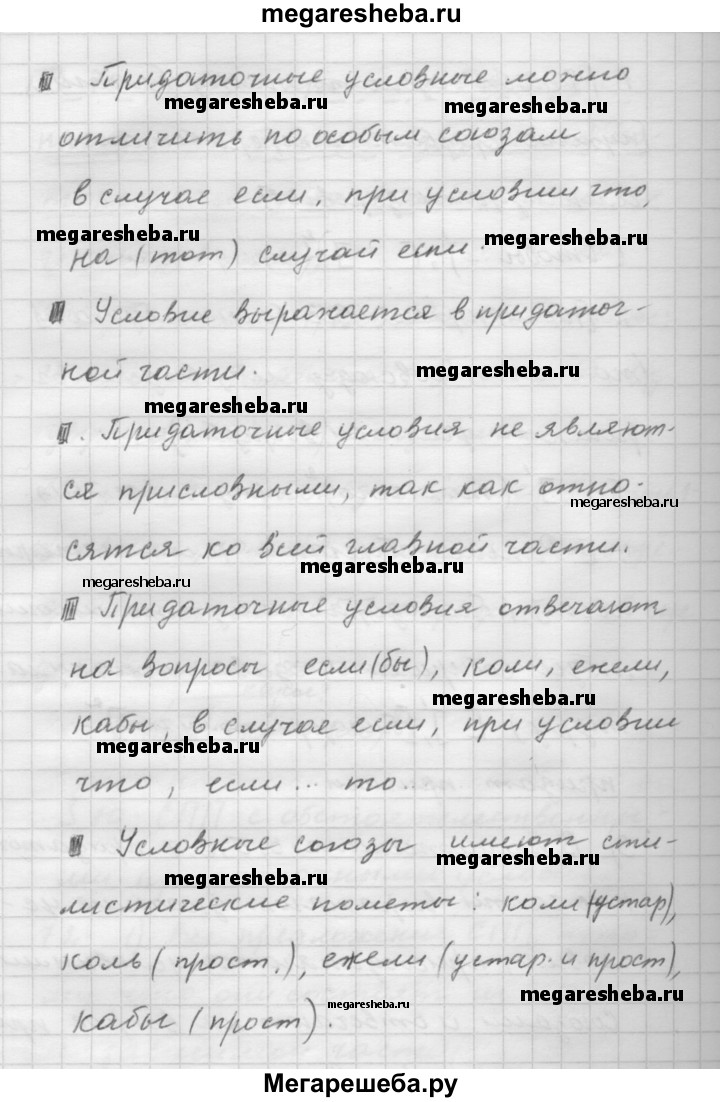 megaresheba.ru
III Придаточные условные можно
megaresheba.ru megaresheba.ru
отличить по особым союзам
в случае если, при условии что,
megaresheba.ru megaresheba.ru
на (тот) случай если.
III Условие выражается в придаточ-
ной части. megaresheba.ru
megaresheba.ru
II. Придаточные условия не являют-
ся присловными, так как отно-
megaresheba.ru
сятся ко всей главной части.
megaresheba.ru megaresheba.ru
III Придаточные условия отвечают
на вопросы если(бы), коли, ежели,
megaresheba.ru
кабы, в случае если, при условии
megaresheba.ru
что, если... то...
III Условные союзы имеют сти-
megaresheba.ru
megaresheba.ru
листические пометы: коли (устар),
коль (прост.), ежели (устар. и прост),
megaresheba.ru megaresheba.ru
кабы (прост).
Мегарешеба.ру